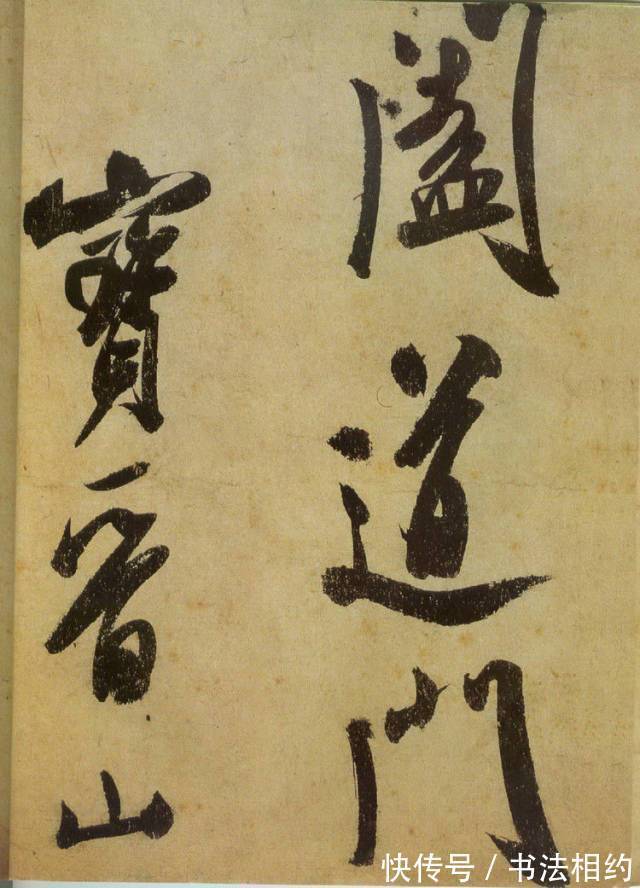 闔道門
寶晉山
快传号 / 书法相约